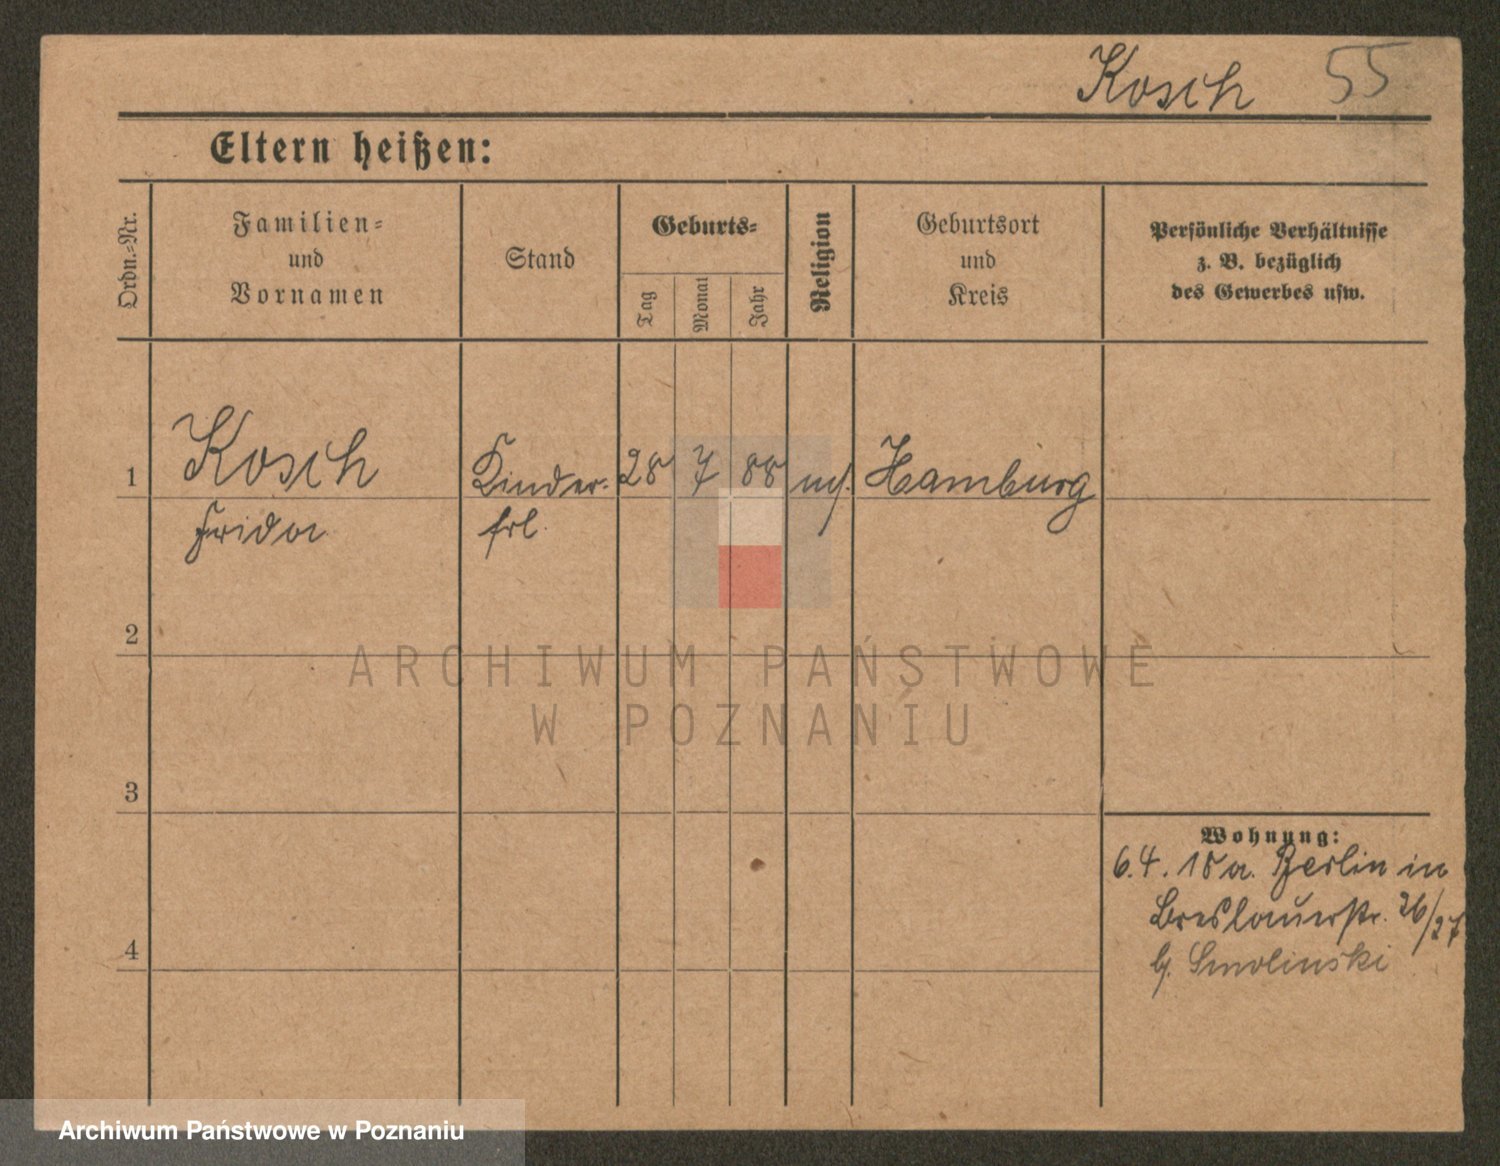 Kosch 55
Eltern heißen:
Ordn.-Nr.
Familien-
und
Vornamen
Stand
Geburts-
Tag
Monat
Jahr
Religion
Geburtsort
und
Kreis
Persönliche Verhältnisse
z. B. bezüglich
des Gewerbes usw.
1 Kosch Kinder- 28 7 88 Hamburg
Frida frl.
2
ARCHIWUM PAŃSTWOWE
W POZNANIU
3
Wohnung:
6.4.18 a. Berlin in
Breslauerstr. 26/27
b. Smolinski
4
Archiwum Państwowe w Poznaniu